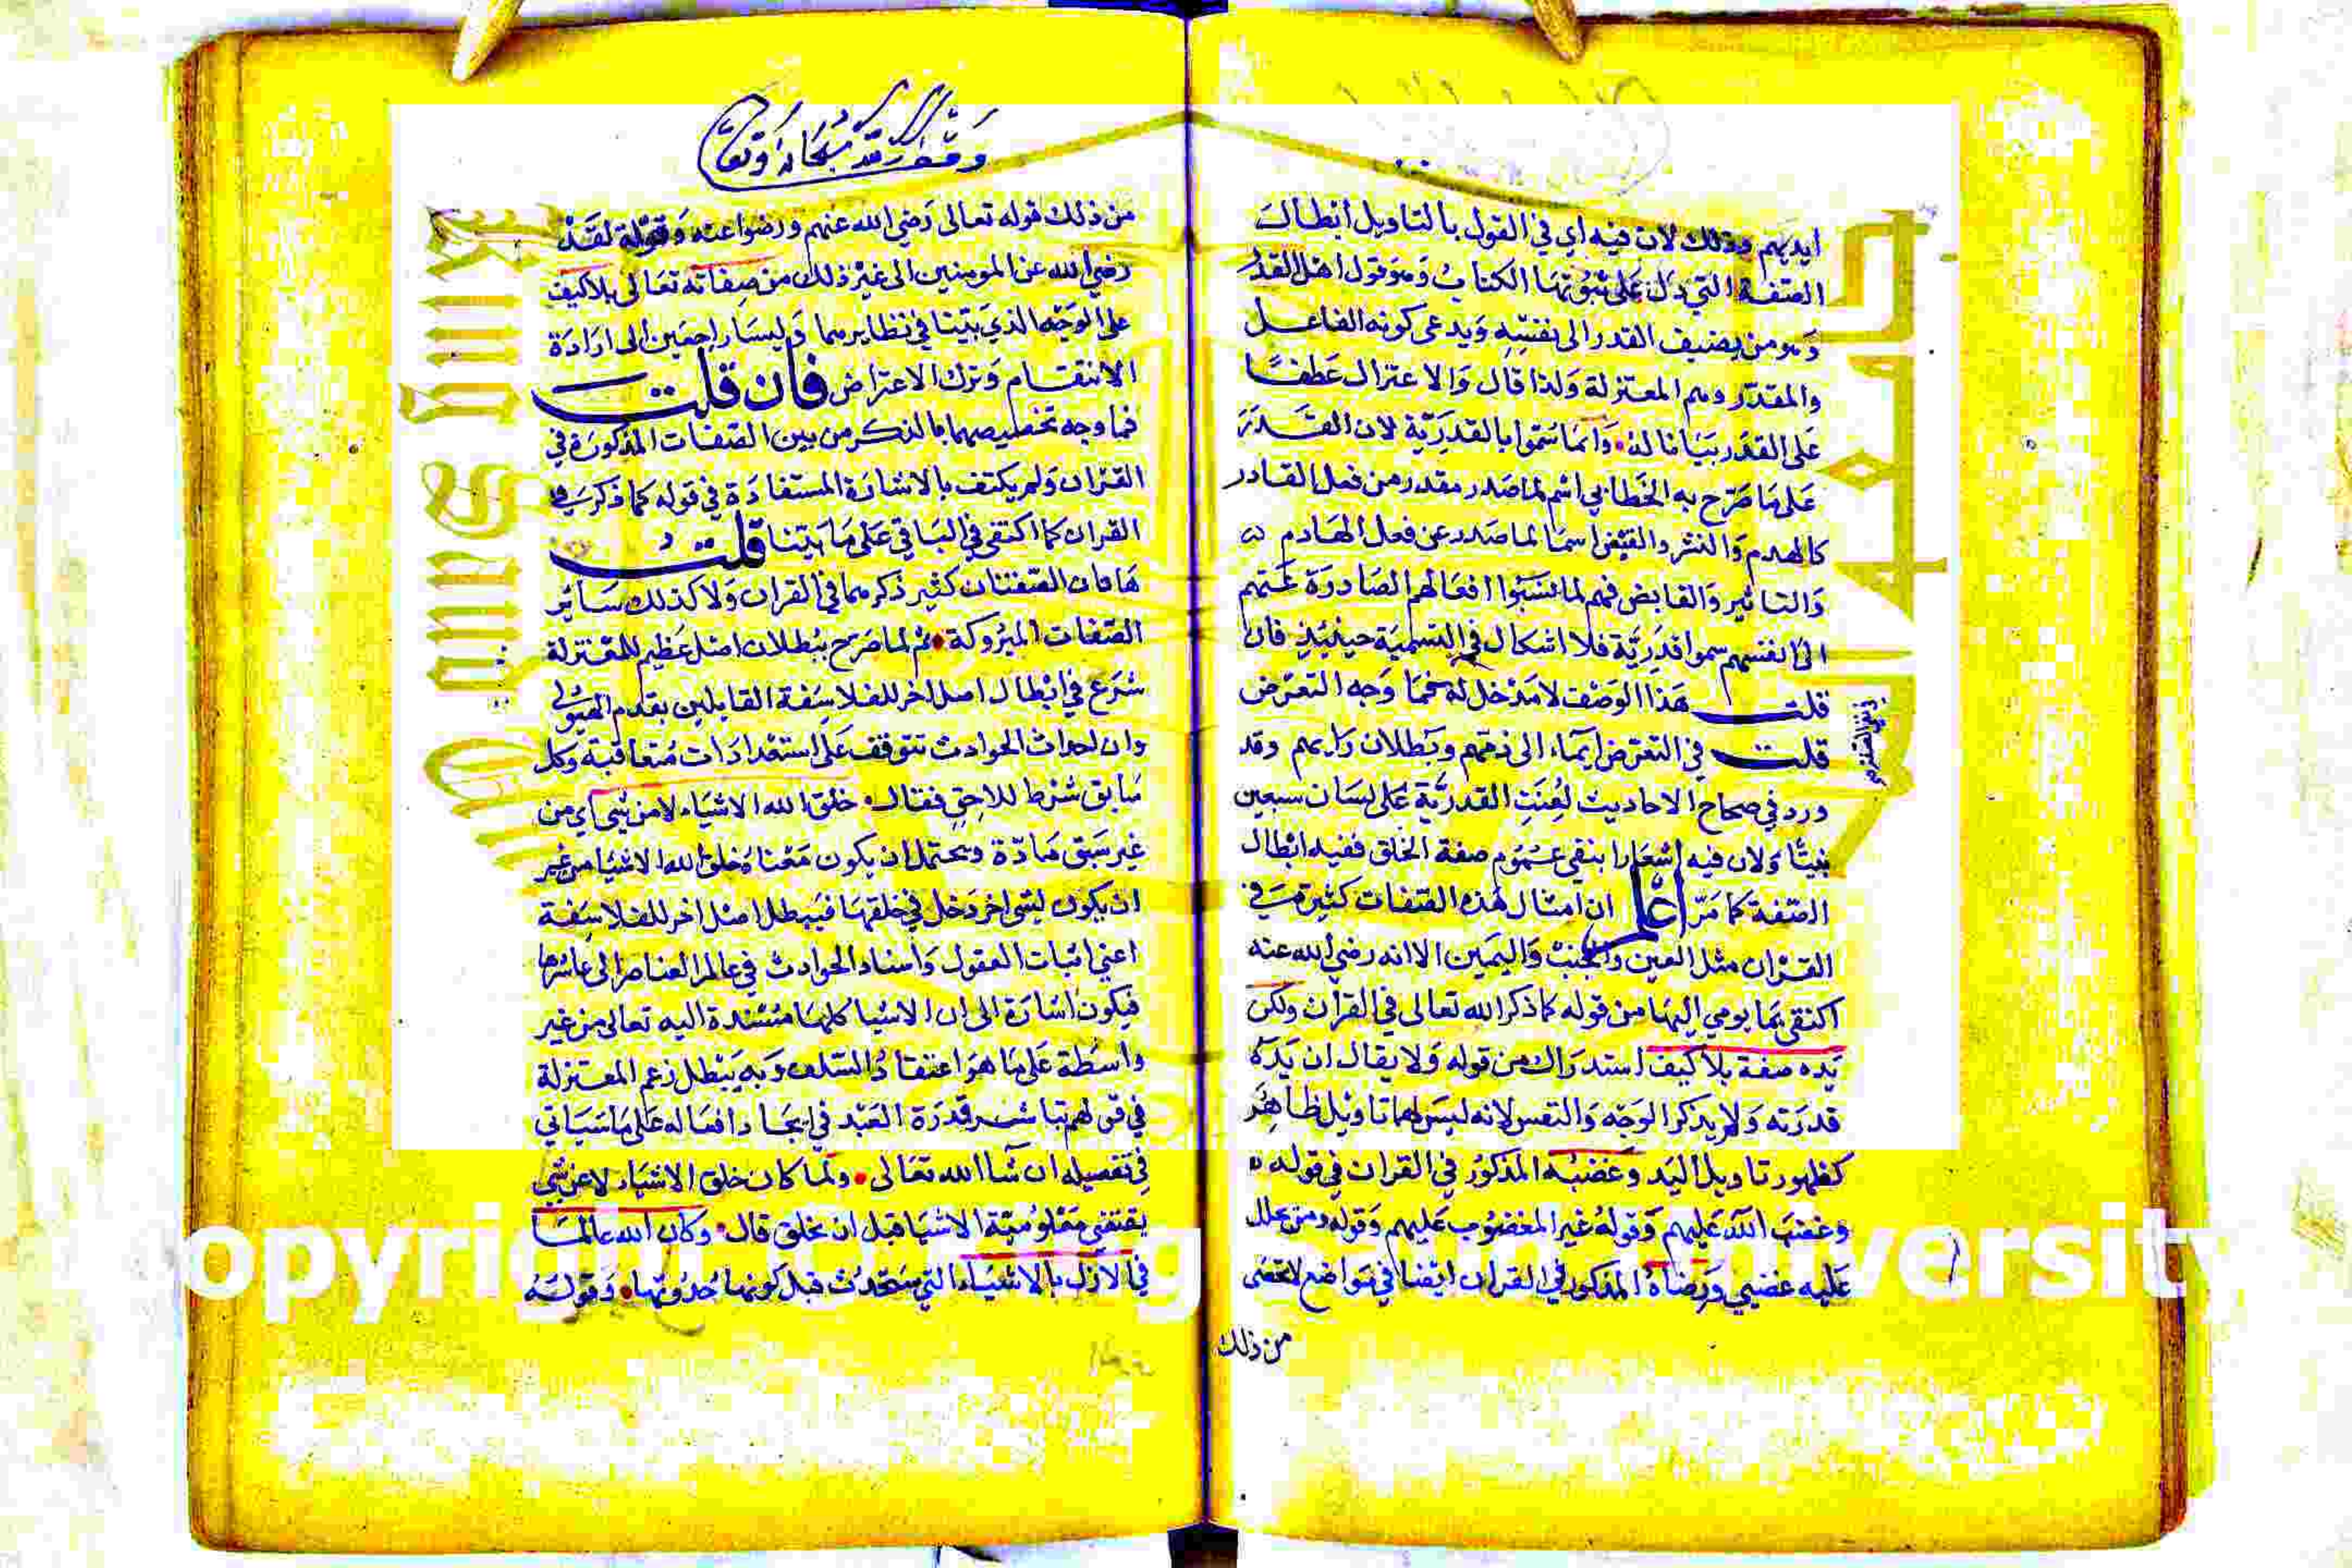 ايديهم وذلك لان فيه اي في القول بالتاويل ابطال
الصفة التي دل على ثبوتها الكتاب وهو قول اهل القدر
وهو من يضيف القدر الى نفسه ويدعى كونه الفاعل
والمقدر وهم المعتزلة ولذا قال والاعتزال عطفا
على القدر بيانا له وانما سموا بالقدرية لان القدر
على ما صرح به الخطابي اسم لما صدر مقدر من فعل القادر
كالهدم والنشر والقبض اسما لما صدر عن فعل الهادم
والناشر والقابض فهم لما نسبوا افعالهم الصادرة عنهم
الى انفسهم سموا قدرية فلا اشكال في التسمية حينيذ فان
قلت هذا الوصف لا مدخل له فما وجه التعرض
قلت في التعرض ايماء الى ذمهم وبطلان رايهم وقد
ورد في صحاح الاحاديث لعنت القدرية على لسان سبعين
نبيا ولان فيه اشعارا بنفي عموم صفة الخلق ففيه ابطال
الصفة كما مر اعلم ان امثال هذه الصفات كثيرة في
القران مثل العين والجنب واليمين الا انه رضي الله عنه
اكتفى بما يومي اليها من قوله كما ذكر الله تعالى في القران ولكن
يده صفة بلا كيف استدراك من قوله ولا يقال ان يده
قدرته ولم يذكر الوجه والنفس لانه ليس لهما تاويل ظاهر
كظهور تاويل اليد وغضبه المذكور في القران في قوله
وغضب الله عليهم وقوله غير المغضوب عليهم وقوله ومن يحلل
عليه غضبي ورضاه المذكور في القران ايضا في مواضع لا تحصى
من ذلك
من ذلك قوله تعالى رضي الله عنهم ورضوا عنه وقوله لقد
رضي الله عن المومنين الى غير ذلك من صفاته تعالى بلا كيف
على الوجه الذي بينا في نظايرهما وليسا راجعين الى ارادة
الانتقام وترك الاعتراض فان قلت
فما وجه تخصيصهما بالذكر من بين الصفات المذكورة في
القران ولم يكتف بالاشارة المستفادة في قوله كما ذكر في
القران كما اكتفى في الباقي على ما بينا قلت
هاتان الصفتان كثير ذكرهما في القران ولا كذلك سائر
الصفات المتروكة ثم لما صرح ببطلان اصل عظيم للمعتزلة
شرع في ابطال اصل اخر للفلاسفة القايلين بقدم الهيولى
وان احداث الحوادث تتوقف على استعدادات متعاقبة وكل
سابق شرط للاحق فقال خلق الله الاشياء لا من شي اي من
غير سبق مادة ويحتمل ان يكون معناه خلق الله الاشيا من غير
ان يكون لشي اخر دخل في خلقها فيبطل اصل اخر للفلاسفة
اعني اثبات العقول واسناد الحوادث في عالم العناصر الى عاشرها
فيكون اشارة الى ان الاشيا كلها مستندة اليه تعالى من غير
واسطة على ما هو اعتقاد السلف وبه يبطل زعم المعتزلة
في قولهم بتاثير قدرة العبد في ايجاد افعاله على ما سياتي
في تفصيله ان شا الله تعالى ولما كان خلق الاشياء لا عن شي
يقتضي معلومية الاشيا قبل ان يخلق قال وكان الله عالما
في الازل بالاشياء التي ستحدث قبل كونها حدوثها وقوله